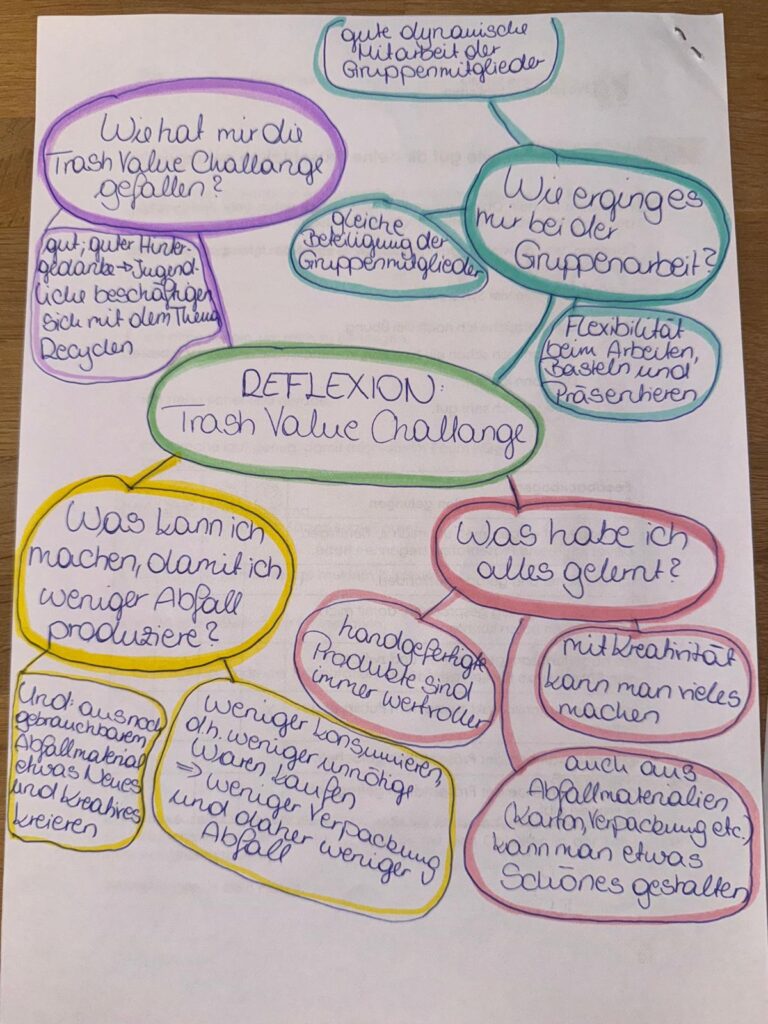 gute dynamische
Mitarbeit der
Gruppenmitglieder
Wie hat mir die
Trash Value Challange
gefallen?
gut, guter Hinter-
gedanke → Jugend-
liche beschäftigen
sich mit dem Thema
Recyclen
Wie erging es
mir bei der
Gruppenarbeit?
gleiche
Beteiligung der
Gruppenmitglieder
Flexibilität
beim Arbeiten,
Basteln und
Präsentieren
REFLEXION:
Trash Value Challange
Was kann ich
machen, damit ich
weniger Abfall
produziere?
Und: aus noch
gebrauchbaren
Abfallmaterial
etwas Neues
und Kreatives
kreieren
weniger konsumieren,
d.h. weniger unnötige
Waren kaufen
⇒ weniger Verpackung
und daher weniger
Abfall
Was habe ich
alles gelernt?
handgefertigte
Produkte sind
immer wertvoller
mit Kreativität
kann man vieles
machen
auch aus
Abfallmaterialien
(Karton, Verpackung etc.)
kann man etwas
Schönes gestalten